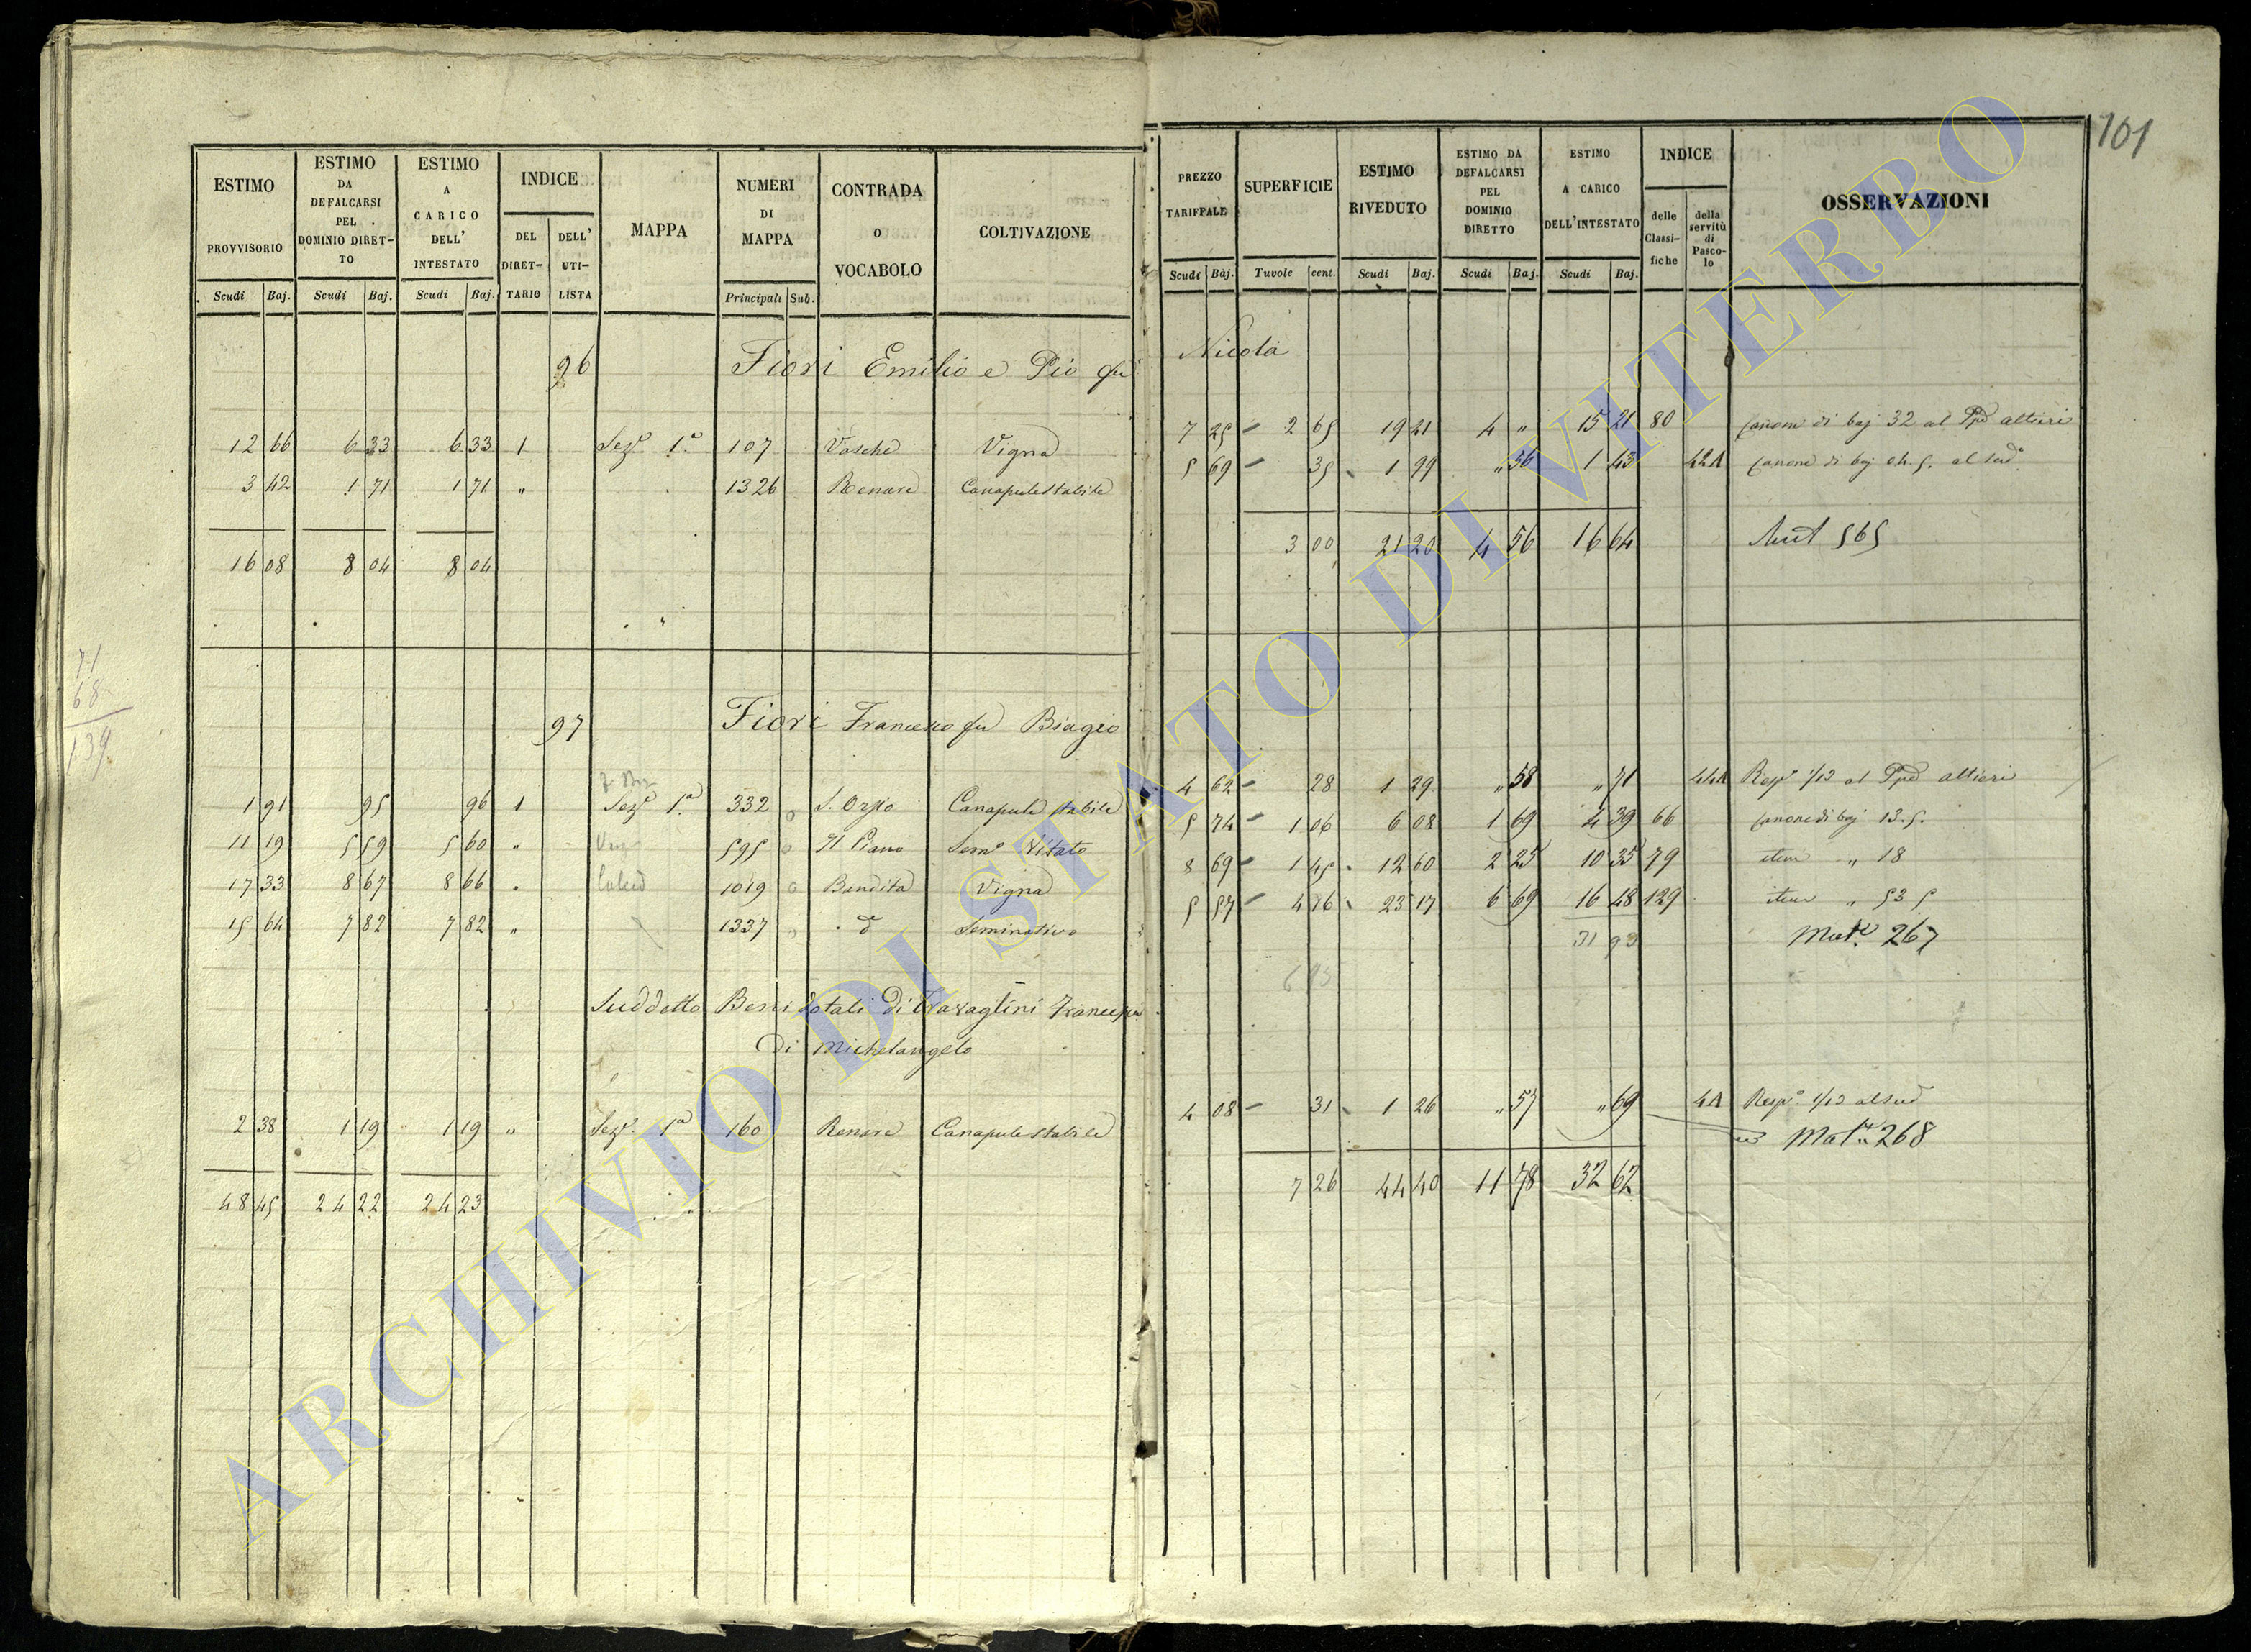 101
ESTIMO PROVVISORIO
ESTIMO DA DEFALCARSI PEL DOMINIO DIRETTO
ESTIMO A CARICO DELL' INTESTATO
INDICE
DEL DIRETTARIO
DELL' UTILISTA
MAPPA
NUMERI DI MAPPA
CONTRADA O VOCABOLO
COLTIVAZIONE
PREZZO TARIFFALE
SUPERFICIE
ESTIMO RIVEDUTO
ESTIMO DA DEFALCARSI PEL DOMINIO DIRETTO
ESTIMO A CARICO DELL'INTESTATO
INDICE
delle Classifiche
della servitù di Pascolo
OSSERVAZIONI
Scudi Baj. Scudi Baj. Scudi Baj. Principali Sub. Scudi Baj. Tavole cent. Scudi Baj. Scudi Baj. Scudi Baj.
96 Fiori Emilio e Pio fu Nicola
12 66 6 33 6 33 1 Sez.e 1.a 107 Vasche Vigna 7 25 2 65 19 21 4 " 15 21 80 Canone di baj 32 al altieri
3 42 1 71 1 71 " 1326 Renare Canapule stabile 5 69 35 1 99 " 56 1 43 44A canone di baj al sud.o
16 08 8 04 8 04 3 00 21 20 4 56 16 64 565
71
68
139
97 Fiori Francesco fu Biagio
1 91 95 96 1 Sez.e 1.a 332 S. Orsio Canapule stabile 4 62 28 1 29 " 58 " 71 44A Resp.e 1/12 al altieri
11 19 5 59 5 60 " 595 Il Piano Sem.o Vitato 5 74 1 06 6 08 1 69 4 39 66 canone di baj 13.5.
17 33 8 67 8 66 1019 Bandita Vigna 8 69 1 45 12 60 2 25 10 35 79 item " 18
15 64 7 82 7 82 " 1337 d.o Seminativo 5 57 4 16 23 17 6 69 16 48 129 item " 53 5
31 93 Mat.e 267
6 93
Suddetto Beni dotali di Travaglini Francesca
di Michelangelo
2 38 1 19 1 19 " Sez.e 1.a 160 Renare Canapule stabile 4 08 31 1 26 " 57 " 69 4A Resp.e 1/12 al sud
Mat.e 268
48 45 24 22 24 23 7 26 44 40 11 78 32 62
ARCHIVIO DI STATO DI VITERBO